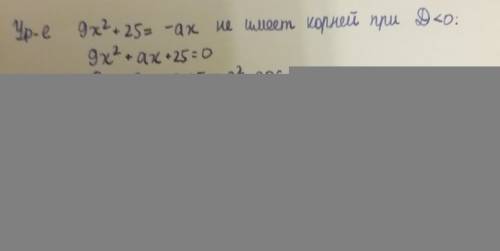 Ур-е 9x²+25= -ax не имеет корней при D<0:
9x²+ax+25=0